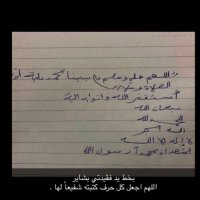 اللهم صل وسلم على نبينا محمد
الصلاة
أستغفر الله وأتوب إليه
سبحان الله
الحمد لله
الله أكبر
لا إله إلا الله
محمد رسول الله
بخط يد فقيدتي بشاير
اللهم اجعل كل حرف كتبته شفيعاً لها .